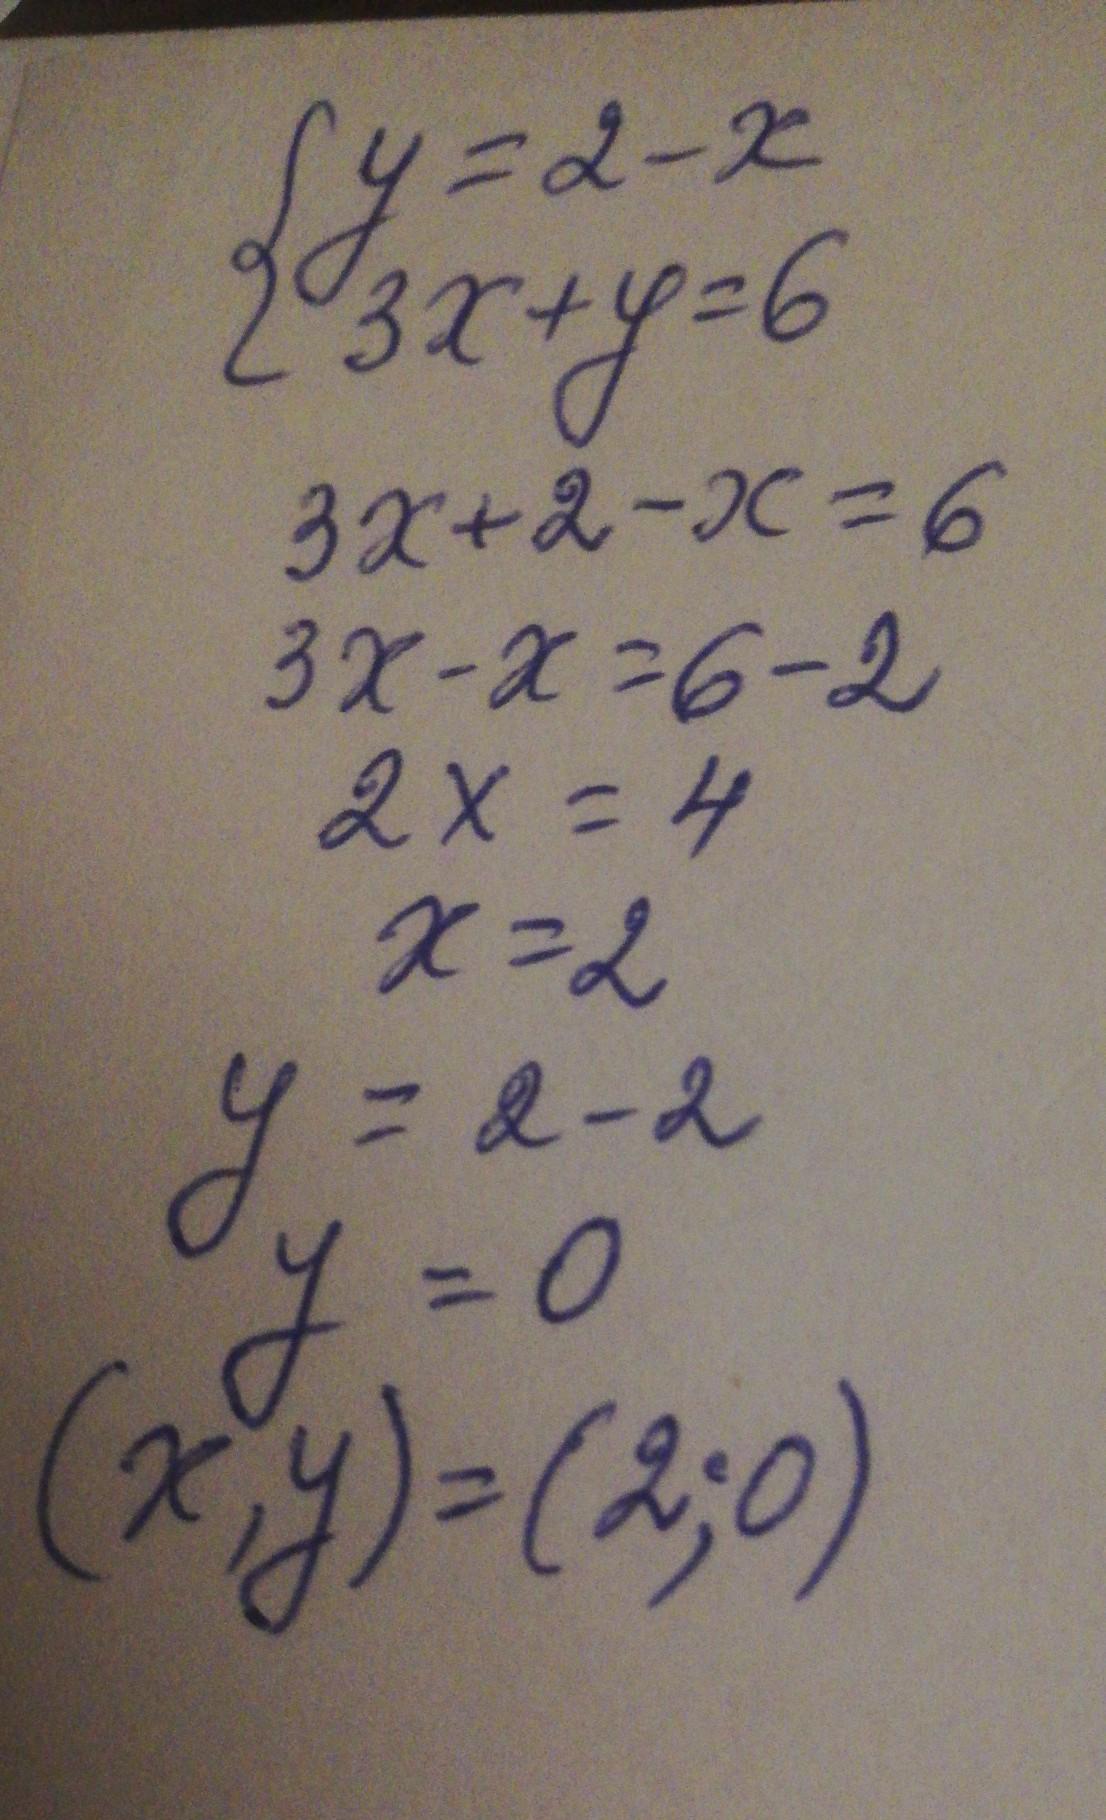 {y = 2 - x
3x + y = 6
3x + 2 - x = 6
3x - x = 6 - 2
2x = 4
x = 2
y = 2 - 2
y = 0
(x, y) = (2; 0)